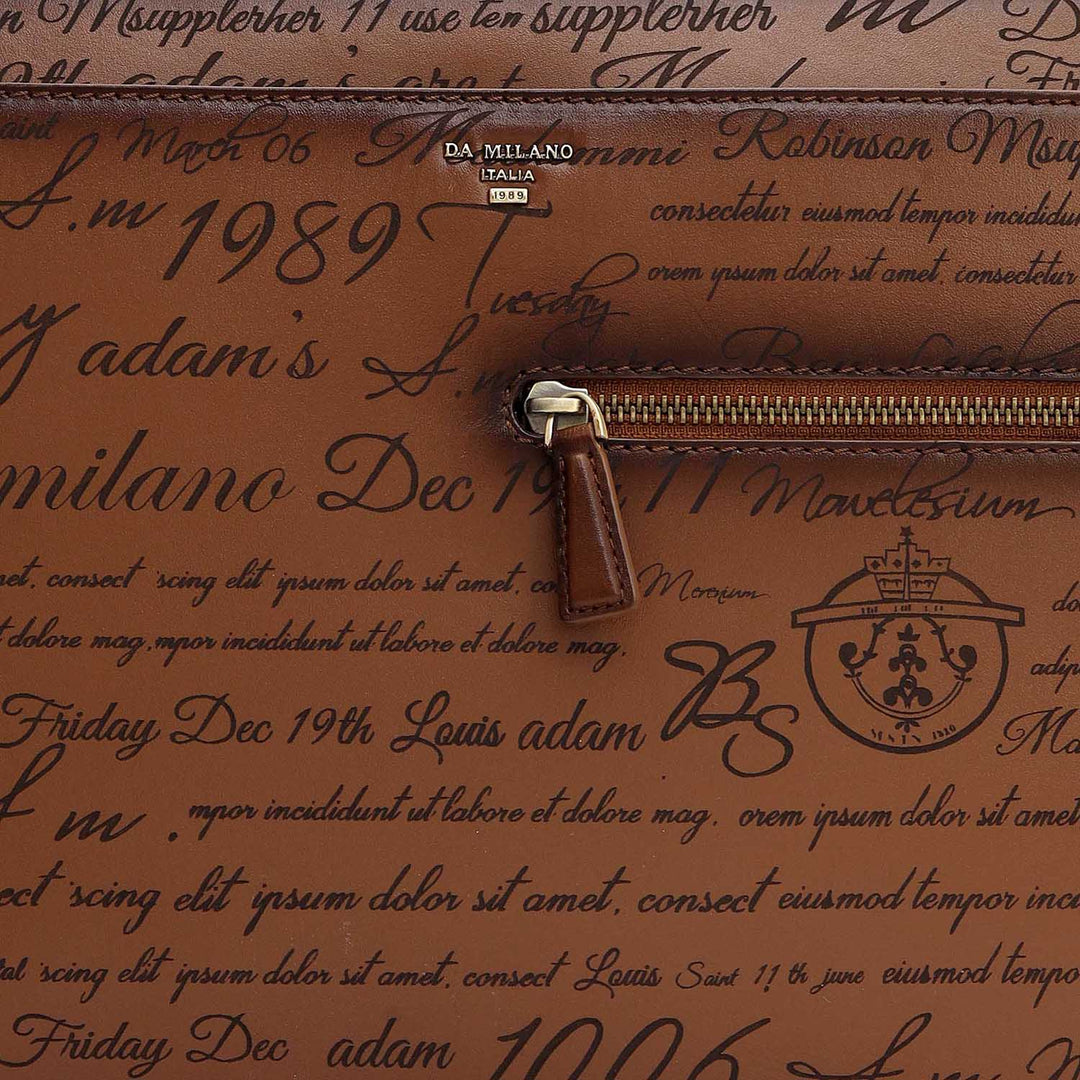 Msupplerher 11 use ten supplerher m
adam's are t M
March 06 DA MILANO Robinson
ITALIA
1989
S.m 1989 Tuesday consectetur eiusmod tempor incididun
orem ipsum dolor sit amet, consectetur
y adam's S.m
milano Dec 19 11 Mavelesium
consect 'scing elit ipsum dolor sit amet, co Merenium
dolore mag, mpor incididunt ut labore et dolore mag,
BS
Friday Dec 19th Louis adam Ma
m . mpor incididunt ut labore et dolore mag, orem ipsum dolor sit amet
ect 'scing elit ipsum dolor sit amet, consect eiusmod tempor inci
'scing elit ipsum dolor sit amet, consect Louis Saint 11 th june eiusmod tempo
Friday Dec adam 1006